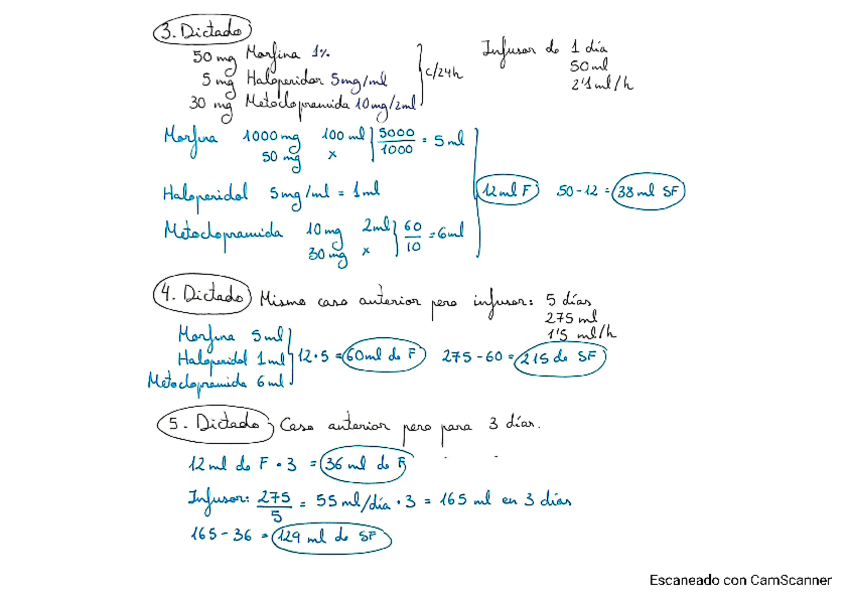 3. Dictado
50 mg Morfina 1%
5 mg Haloperidor 5mg/ml
30 mg Metoclopramida 10mg/2ml
c/24h
Infusor de 1 día
50 ml
2'1 ml/h
Morfina 1000 mg 100 ml 5000/1000 = 5 ml
50 mg x
Haloperidol 5mg/ml = 1ml
Metoclopramida 10 mg 2ml 60/10 = 6ml
30 mg x
12 ml F 50-12 = 38 ml SF
4. Dictado Mismo caso anterior pero infusor: 5 días
275 ml
1'5 ml/h
Morfina 5 ml
Haloperidol 1 ml
Metoclopramida 6 ml
12·5 = 60 ml de F 275-60 = 215 de SF
5. Dictado Caso anterior pero para 3 días.
12 ml de F · 3 = 36 ml de F
Infusor: 275/5 = 55 ml/día · 3 = 165 ml en 3 días
165-36 = 129 ml de SF
Escaneado con CamScanner